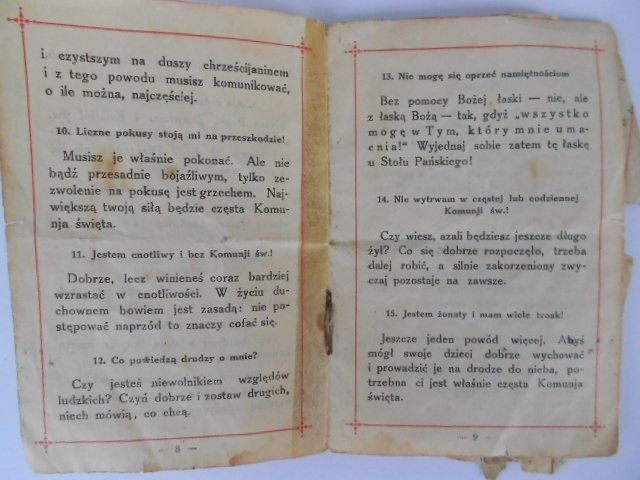 i czystszym na duszy chrześcijaninem
i z tego powodu musisz komunikować,
o ile można, najczęściej.
10. Liczne pokusy stoją mi na przeszkodzie!
Musisz je właśnie pokonać. Ale nie
bądź przesadnie bojaźliwym, tylko ze-
zwolenie na pokusę jest grzechem. Naj-
większą twoją siłą będzie częsta Komu-
nja święta.
11. Jestem cnotliwy i bez Komunji św.!
Dobrze, lecz winieneś coraz bardziej
wzrastać w cnotliwości. W życiu du-
chownem bowiem jest zasadą: nie po-
stępować naprzód to znaczy cofać się.
12. Co powiedzą drudzy o mnie?
Czy jesteś niewolnikiem względów
ludzkich? Czyń dobrze i zostaw drugich,
niech mówią, co chcą.
— 8 —
13. Nie mogę się oprzeć namiętnościom
Bez pomocy Bożej łaski — nie, ale
z łaską Bożą — tak, gdyż „wszystko
mogę w Tym, który mnie uma-
cnia!" Wyjednaj sobie zatem tę łaskę
u Stołu Pańskiego!
14. Nie wytrwam w częstej lub codziennej
Komunji św.!
Czy wiesz, azali będziesz jeszcze długo
żył? Co się dobrze rozpoczęło, trzeba
dalej robić, a silnie zakorzeniony zwy-
czaj pozostaje na zawsze.
15. Jestem żonaty i mam wiele trosk!
Jeszcze jeden powód więcej. Abyś
mógł swoje dzieci dobrze wychować
i prowadzić je na drodze do nieba, po-
trzebna ci jest właśnie częsta Komunja
święta.
— 9 —